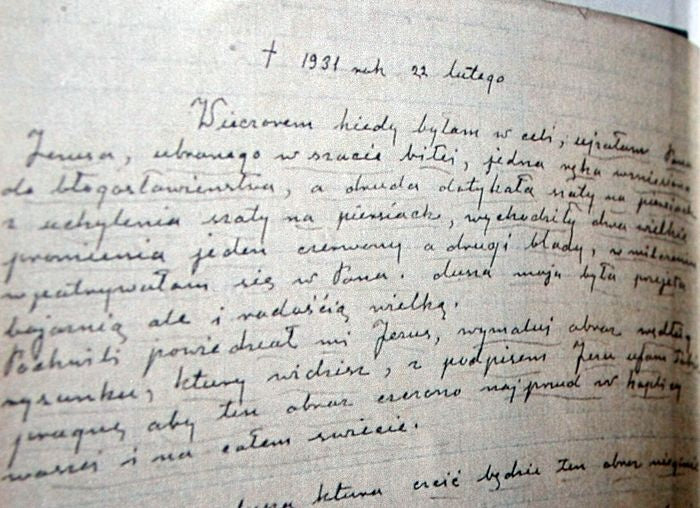 † 1931 rok 22 lutego
Wieczorem kiedy byłam w celi, ujrzałam Pana
Jezusa, ubranego w szacie biłei, jedna ręka wzniesiona
do błogosławieństwa, a druda dotykała szaty na piersiach
z uchylenia szaty na piersiach, wychodziły dwa wielkie
promienia jeden czerwony a drugi blady, w milczeniu
wpatrywałam się w Pana. dusza moja była przejęta
bojarnią ale i radością wielką.
Po chwili powiedział mi Jezus, wymaluj obraz według
rysunku, ktury widzisz, z podpisem Jezu ufam Tobie
pragnę aby ten obraz czczono najprud w kaplicy
waszei i na całem świecie.
dusza ktura cześć będzie ten obraz nieginie